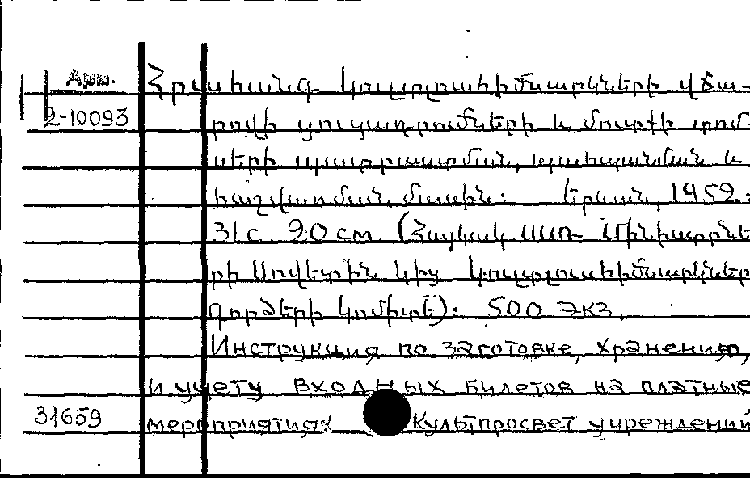 Арм.
2-10093
Հրահանգ կուլտլուսհիմնարկների վճա-
րովի տոմսերի և մուտքի տոմ
սերի պատրաստման, պահպանման և
հաշվառման մասին: Երևան, 1959.:
31 с. 20 см (Հայկակ. ՍՍՌ Մինիստրնե
րի Սովետին կից Կուլտլուսհիմնարկներ
գործերի կոմիտե): 500 экз.
Инструкция по заготовке, хранению,
и учету входных билетов на платные
31659 мероприятиях Культпросвет учреждений